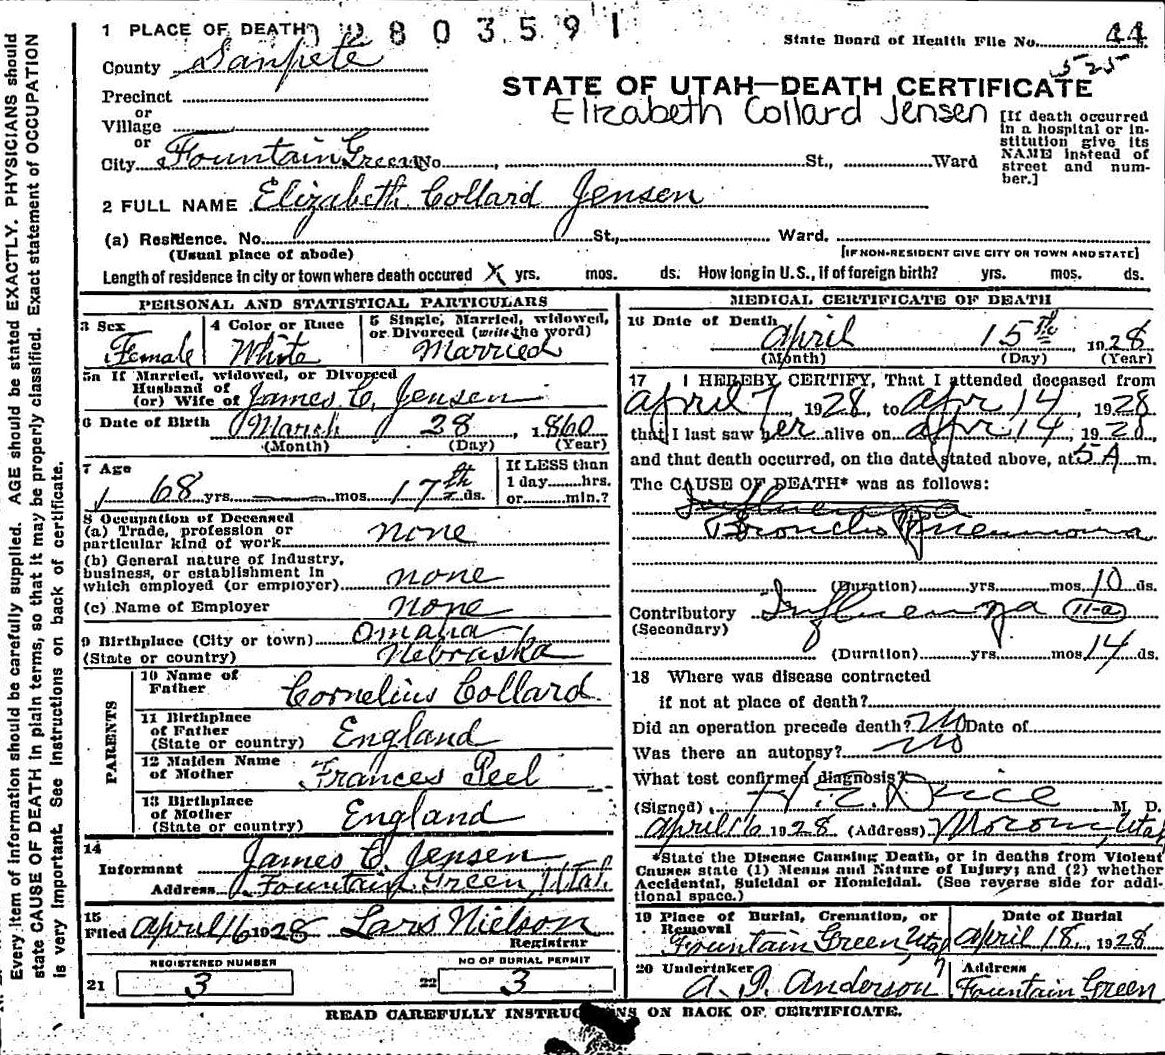 Every item of information should be carefully supplied. AGE should be stated EXACTLY. PHYSICIANS should
state CAUSE OF DEATH in plain terms, so that it may be properly classified. Exact statement of OCCUPATION
is very important. See instructions on back of certificate.
1 PLACE OF DEATH
2803591
State Board of Health File No. 44
525
County Sanpete
STATE OF UTAH—DEATH CERTIFICATE
Precinct
or
Elizabeth Collard Jensen
[If death occurred
in a hospital or in-
stitution give its
NAME instead of
street and num-
ber.]
Village
or
City Fountain Green No. , St., Ward
2 FULL NAME Elizabeth Collard Jensen
(a) Residence. No. St., Ward.
(Usual place of abode)
[IF NON-RESIDENT GIVE CITY OR TOWN AND STATE]
Length of residence in city or town where death occured X yrs. mos. ds. How long in U.S., if of foreign birth? yrs. mos. ds.
PERSONAL AND STATISTICAL PARTICULARS
3 Sex
Female
4 Color or Race
White
5 Single, Married, widowed,
or Divorced (write the word)
Married
5a If Married, widowed, or Divorced
Husband of
(or) Wife of James C. Jensen
6 Date of Birth March 28, 1860
(Month) (Day) (Year)
7 Age
68 yrs. — mos. 17th ds.
If LESS than
1 day hrs.
or min.?
8 Occupation of Deceased
(a) Trade, profession or
particular kind of work none
(b) General nature of industry,
business, or establishment in
which employed (or employer) none
(c) Name of Employer none
9 Birthplace (City or town) Omaha
(State or country) Nebraska
PARENTS
10 Name of
Father Cornelius Collard
11 Birthplace
of Father
(State or country) England
12 Maiden Name
of Mother Frances Peel
13 Birthplace
of Mother
(State or country) England
14
Informant James C. Jensen
Address Fountain Green, Utah
15
Filed April 16 1928 Lars Nielson
Registrar
REGISTERED NUMBER
21 3
NO OF BURIAL PERMIT
22 3
MEDICAL CERTIFICATE OF DEATH
16 Date of Death April 15th 1928
(Month) (Day) (Year)
17 I HEREBY CERTIFY, That I attended deceased from
April 7, 1928, to Apr 14, 1928
that I last saw her alive on Apr 14, 1928,
and that death occurred, on the date stated above, at 5 A m.
The CAUSE OF DEATH* was as follows:
Influenza
Broncho Pneumonia
(Duration) yrs. mos. 10 ds.
Contributory Influenza 11-a
(Secondary)
(Duration) yrs. mos. 14 ds.
18 Where was disease contracted
if not at place of death?
Did an operation precede death? No Date of
Was there an autopsy? No
What test confirmed diagnosis?
(Signed) M. D.
April 16 1928 (Address) Moroni, Utah
*State the Disease Causing Death, or in deaths from Violent
Causes state (1) Means and Nature of Injury; and (2) whether
Accidental, Suicidal or Homicidal. (See reverse side for addi-
tional space.)
19 Place of Burial, Cremation, or
Removal
Fountain Green, Utah
Date of Burial
April 18, 1928
20 Undertaker
Anderson
Address
Fountain Green
READ CAREFULLY ON BACK OF CERTIFICATE.